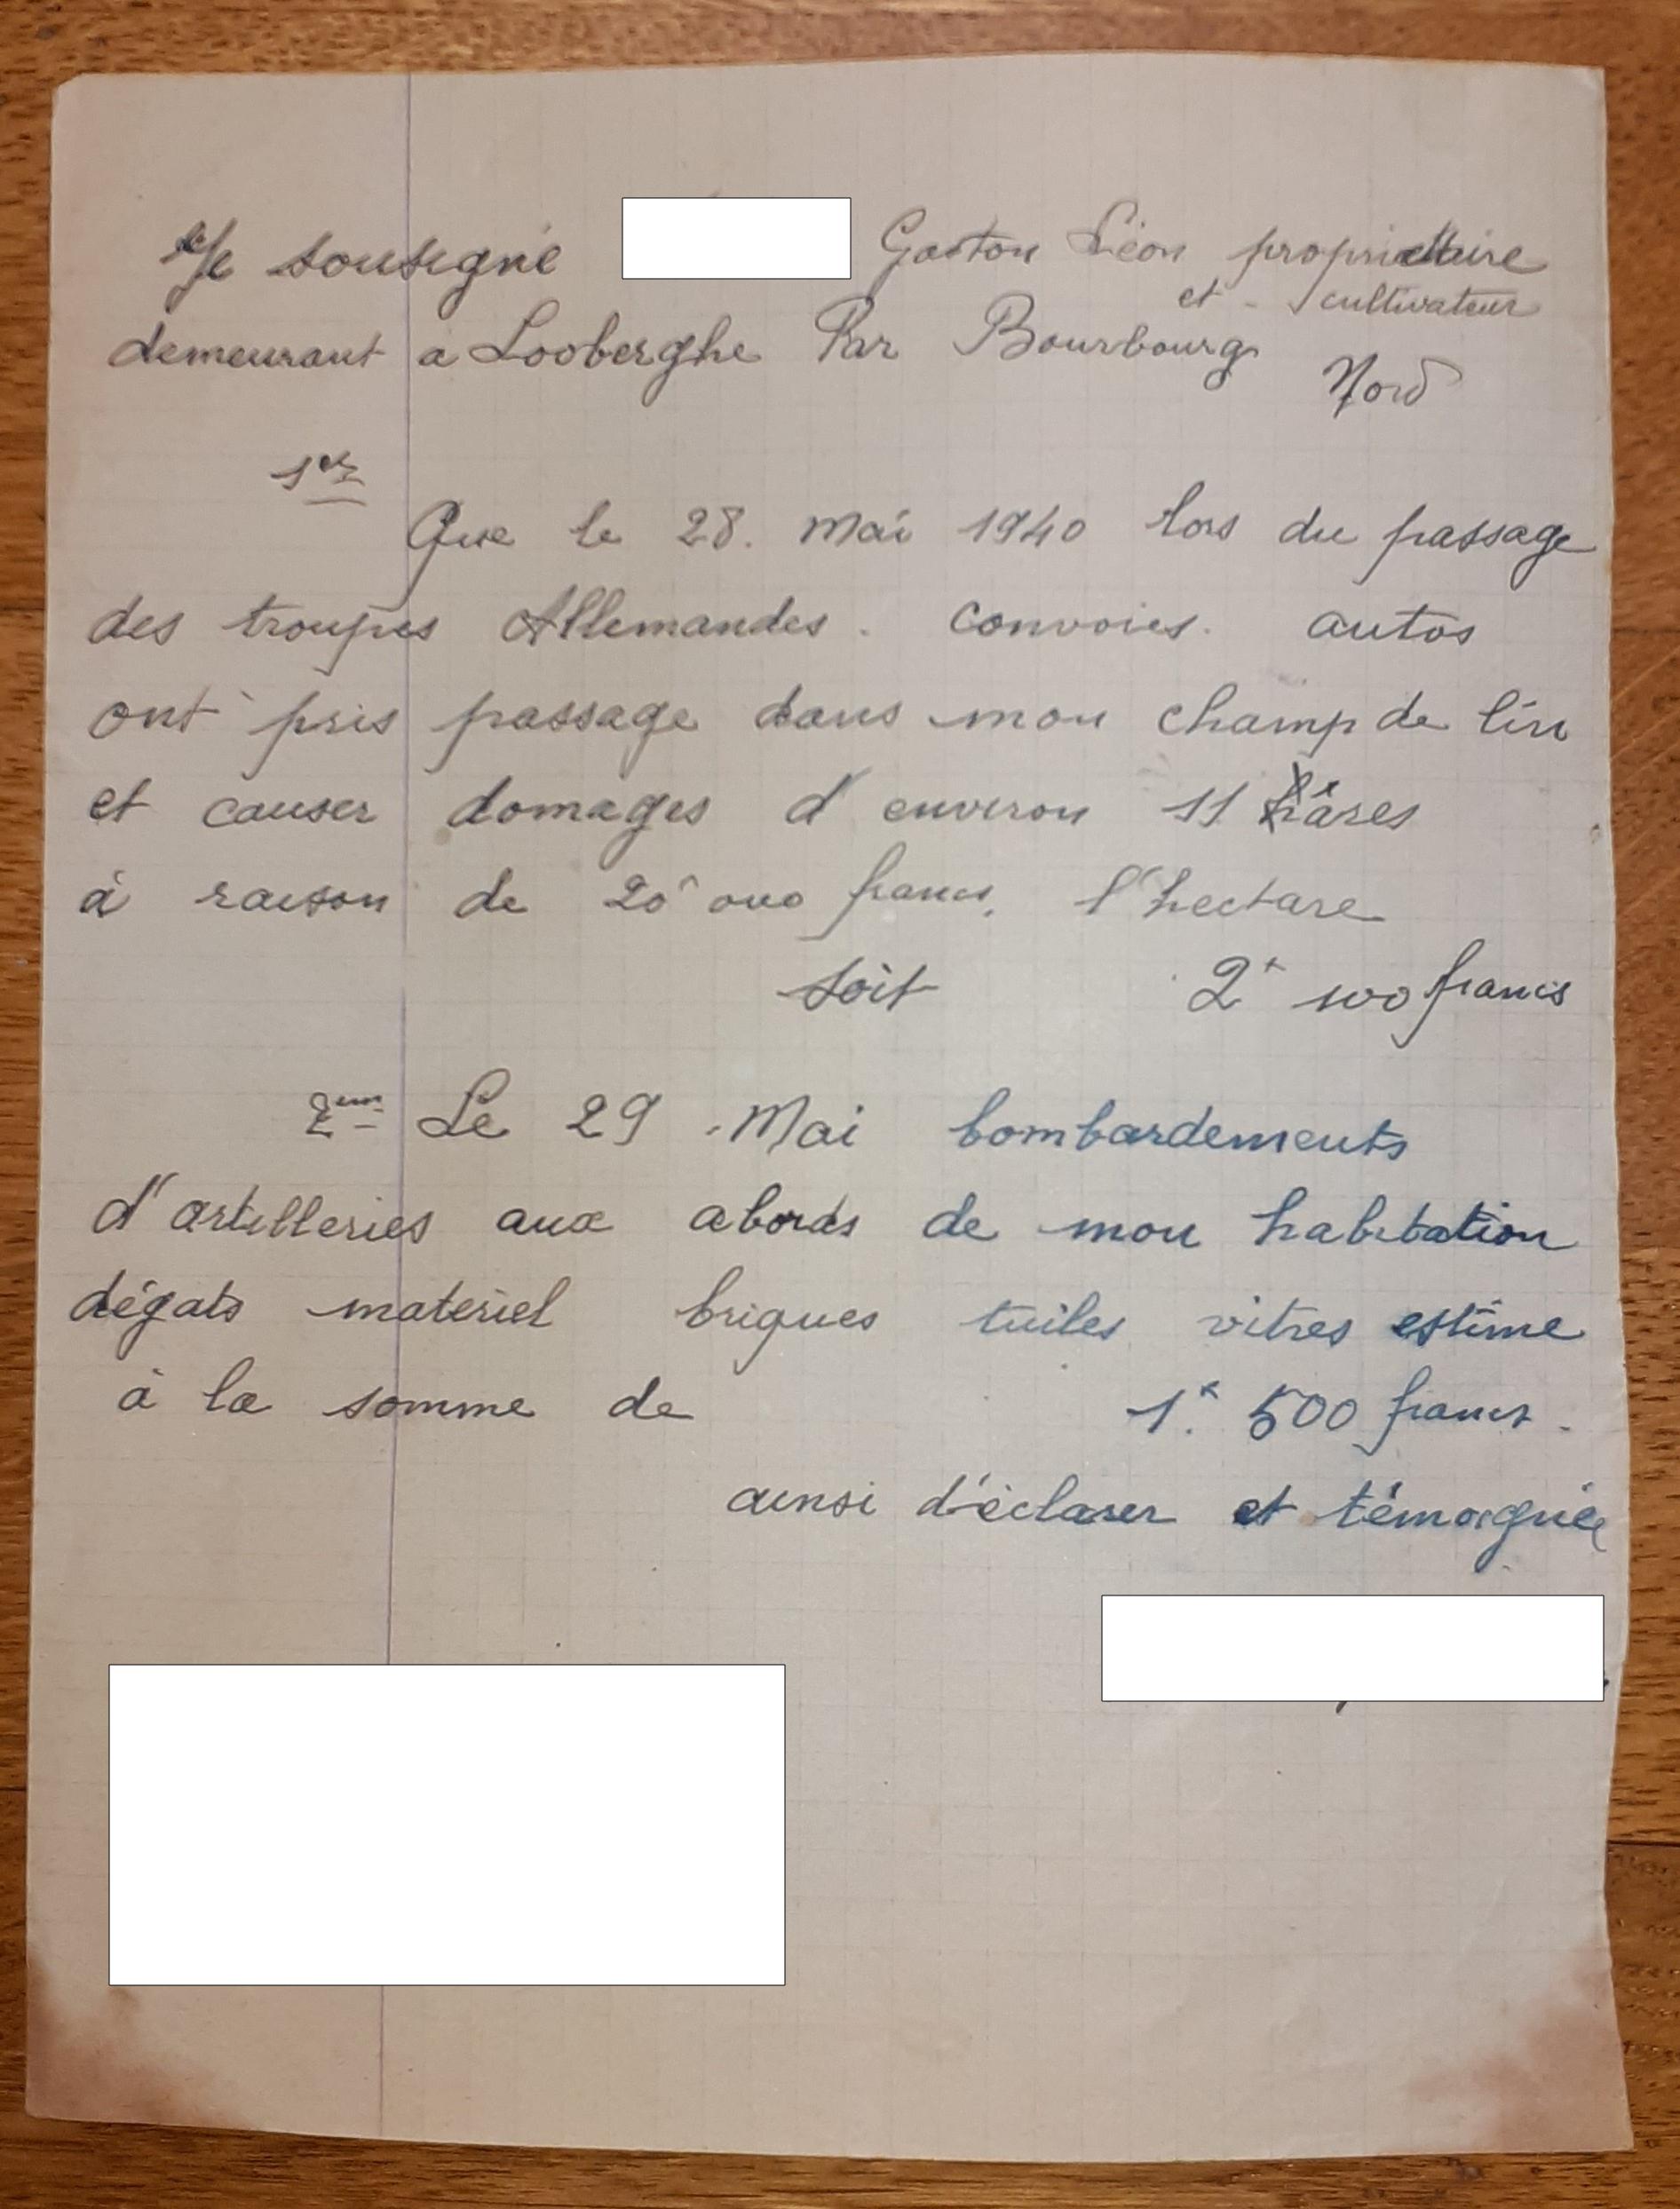 Je sousigné Gaston Léon propriettaire
et cultivateur
demeurant a Looberghe Par Bourbourg
Nord
1er
Que le 28. Mai 1940 lors du passage
des troupes Allemandes. convoies. autos
ont pris passage dans mon champ de lin
et causer domages d'environ 11 ares
à raison de 20 000 francs. l'hectare
soit 2 100 francs
2em Le 29 Mai bombardements
d'artilleries aux abords de mon habitation
dégats materiel briques tuiles vitres estime
à la somme de 1. 500 francs.
ainsi déclarer et témoignée